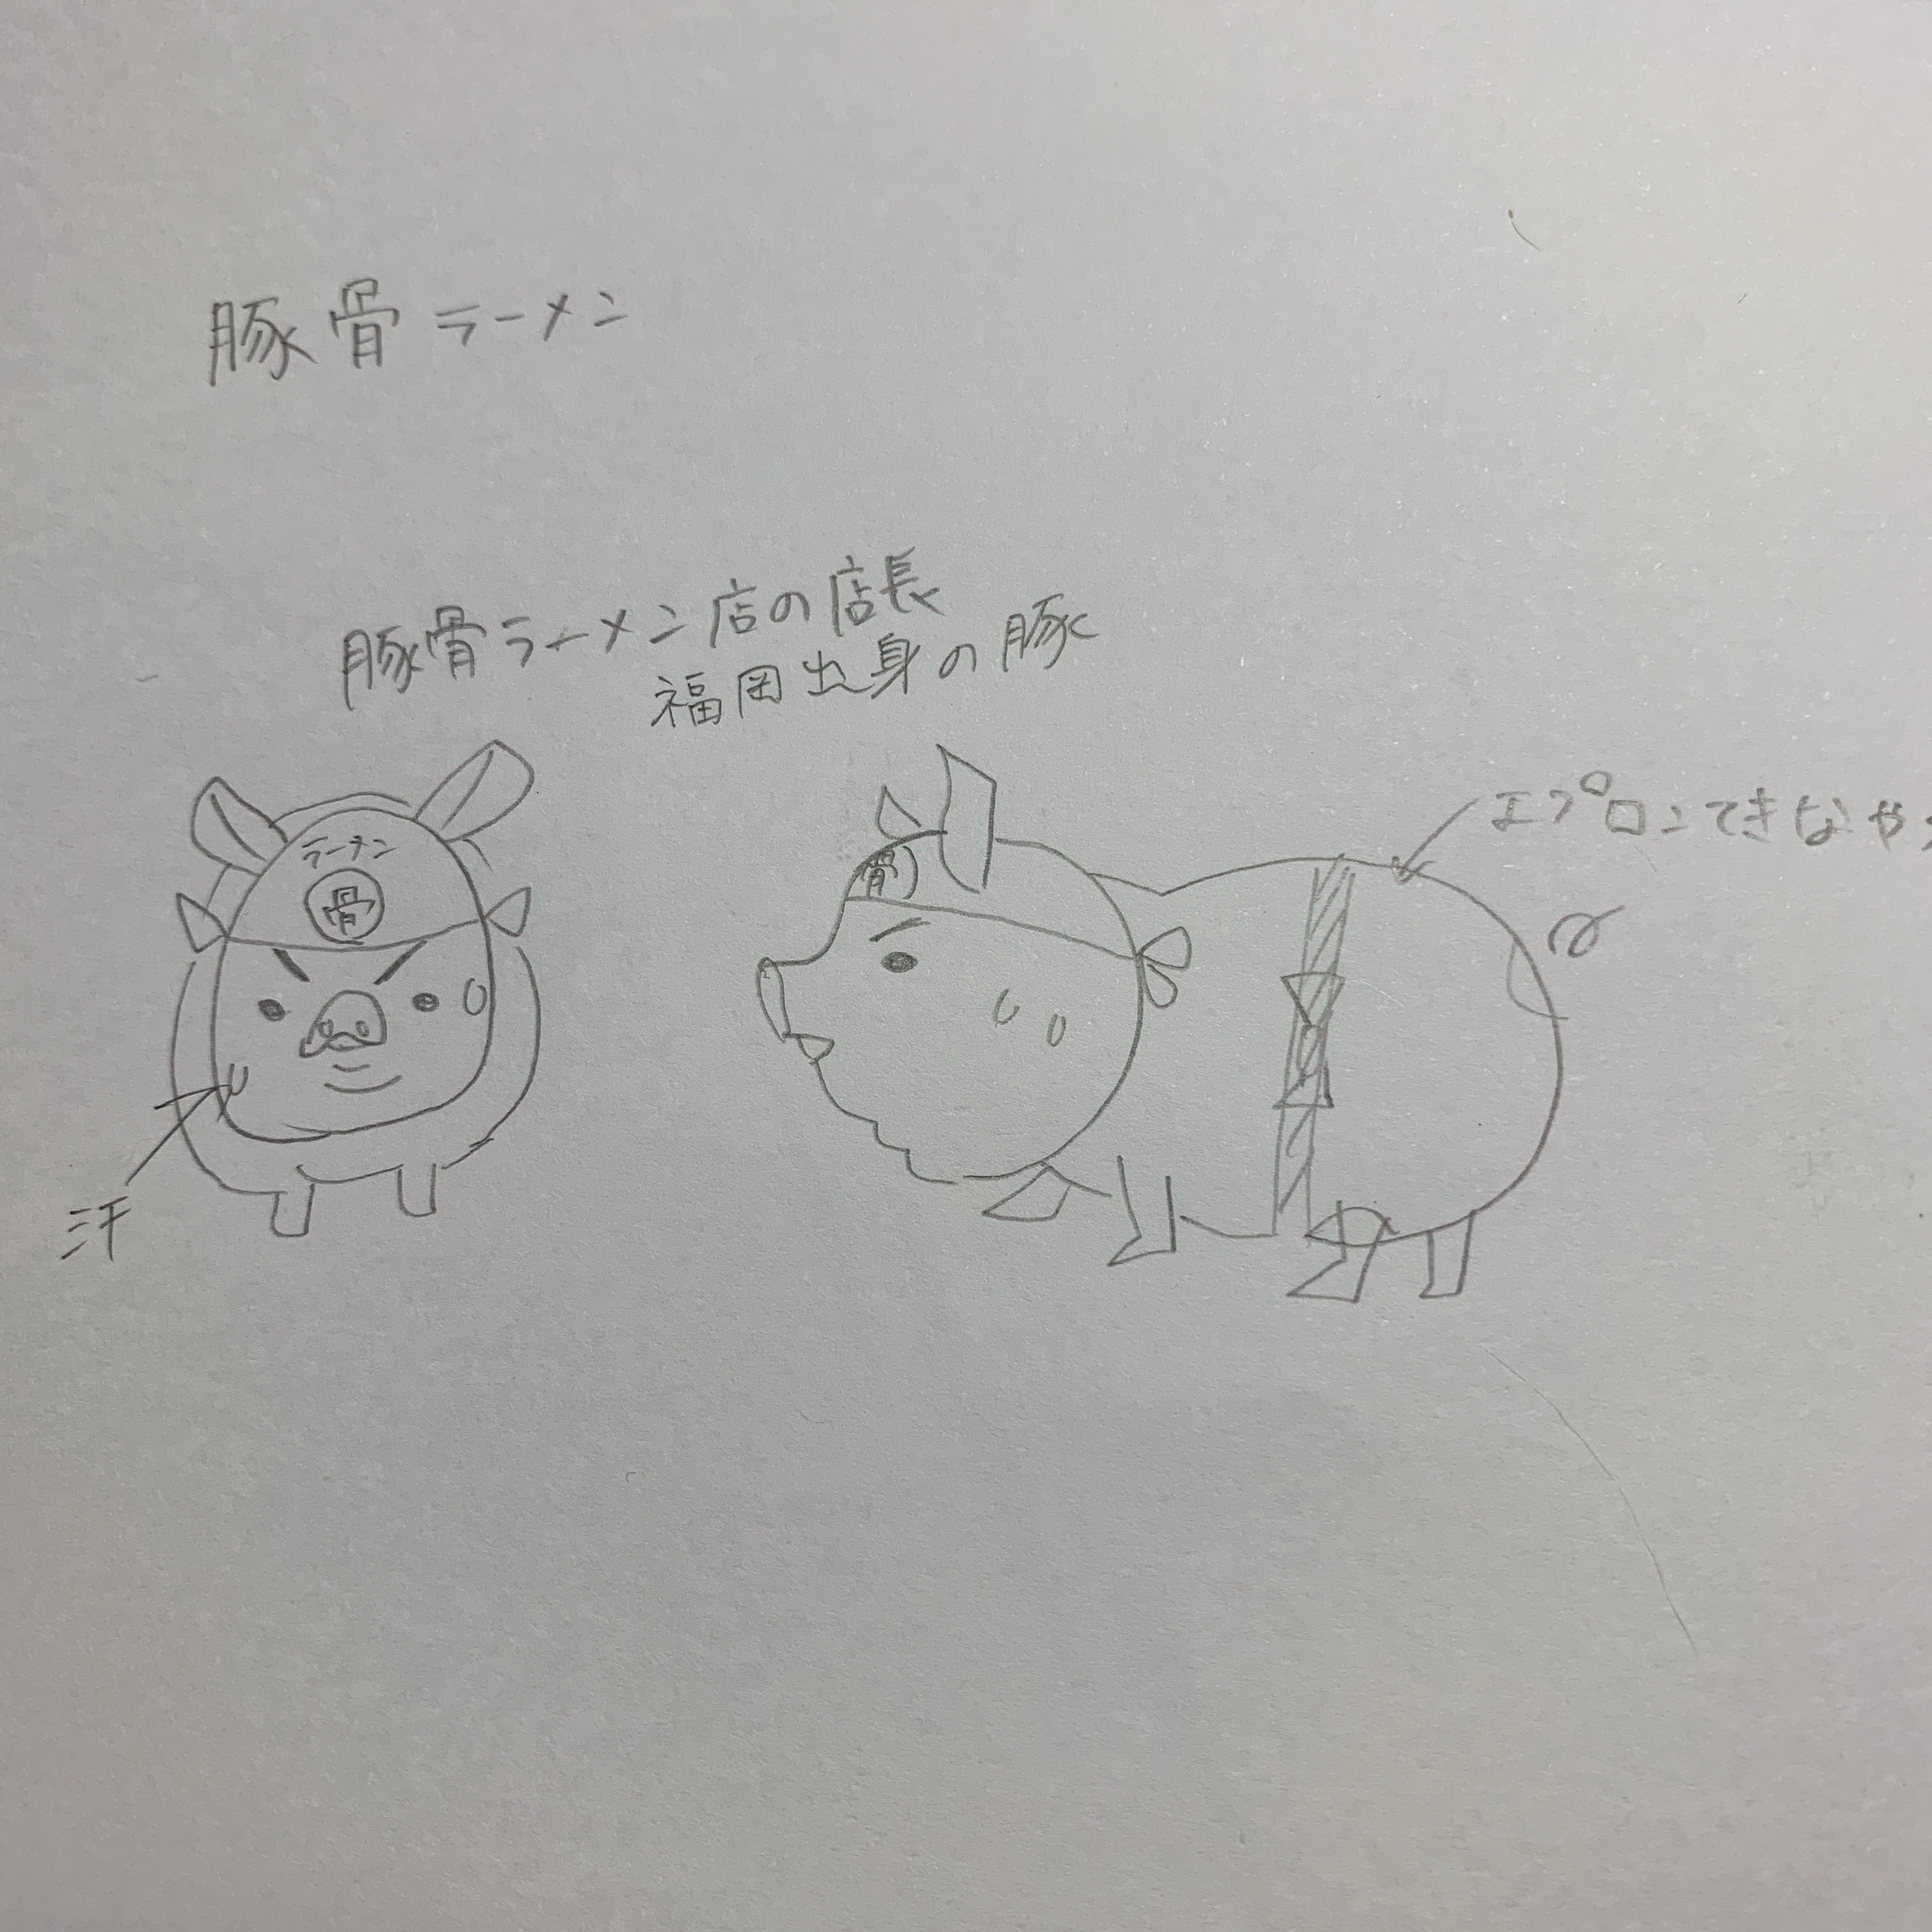 豚骨ラーメン
豚骨ラーメン店の店長
福岡出身の豚
エプロンてきなや
ラーメン
骨
骨
汗